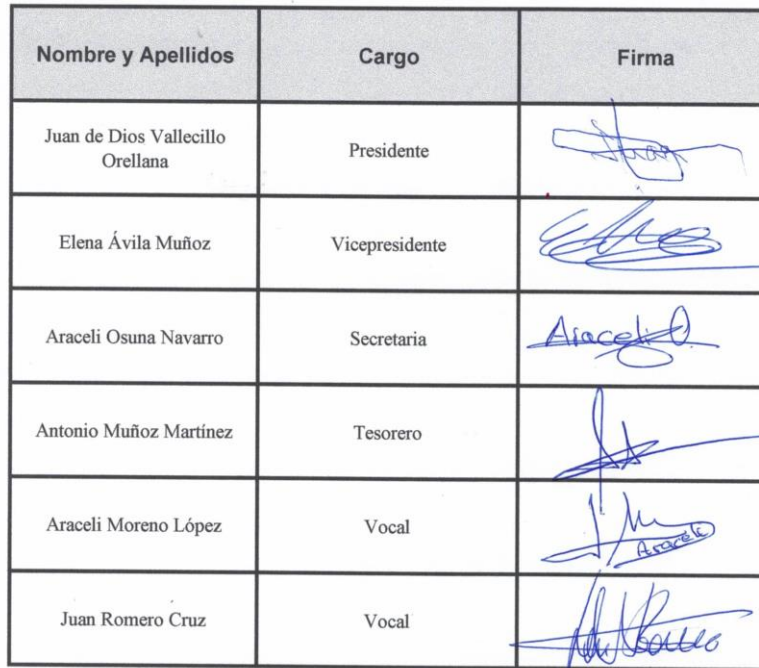 Nombre y Apellidos Cargo Firma
Juan de Dios Vallecillo
Orellana
Presidente
Elena Ávila Muñoz Vicepresidente
Araceli Osuna Navarro Secretaria Araceli O.
Antonio Muñoz Martínez Tesorero
Araceli Moreno López Vocal Araceli
Juan Romero Cruz Vocal